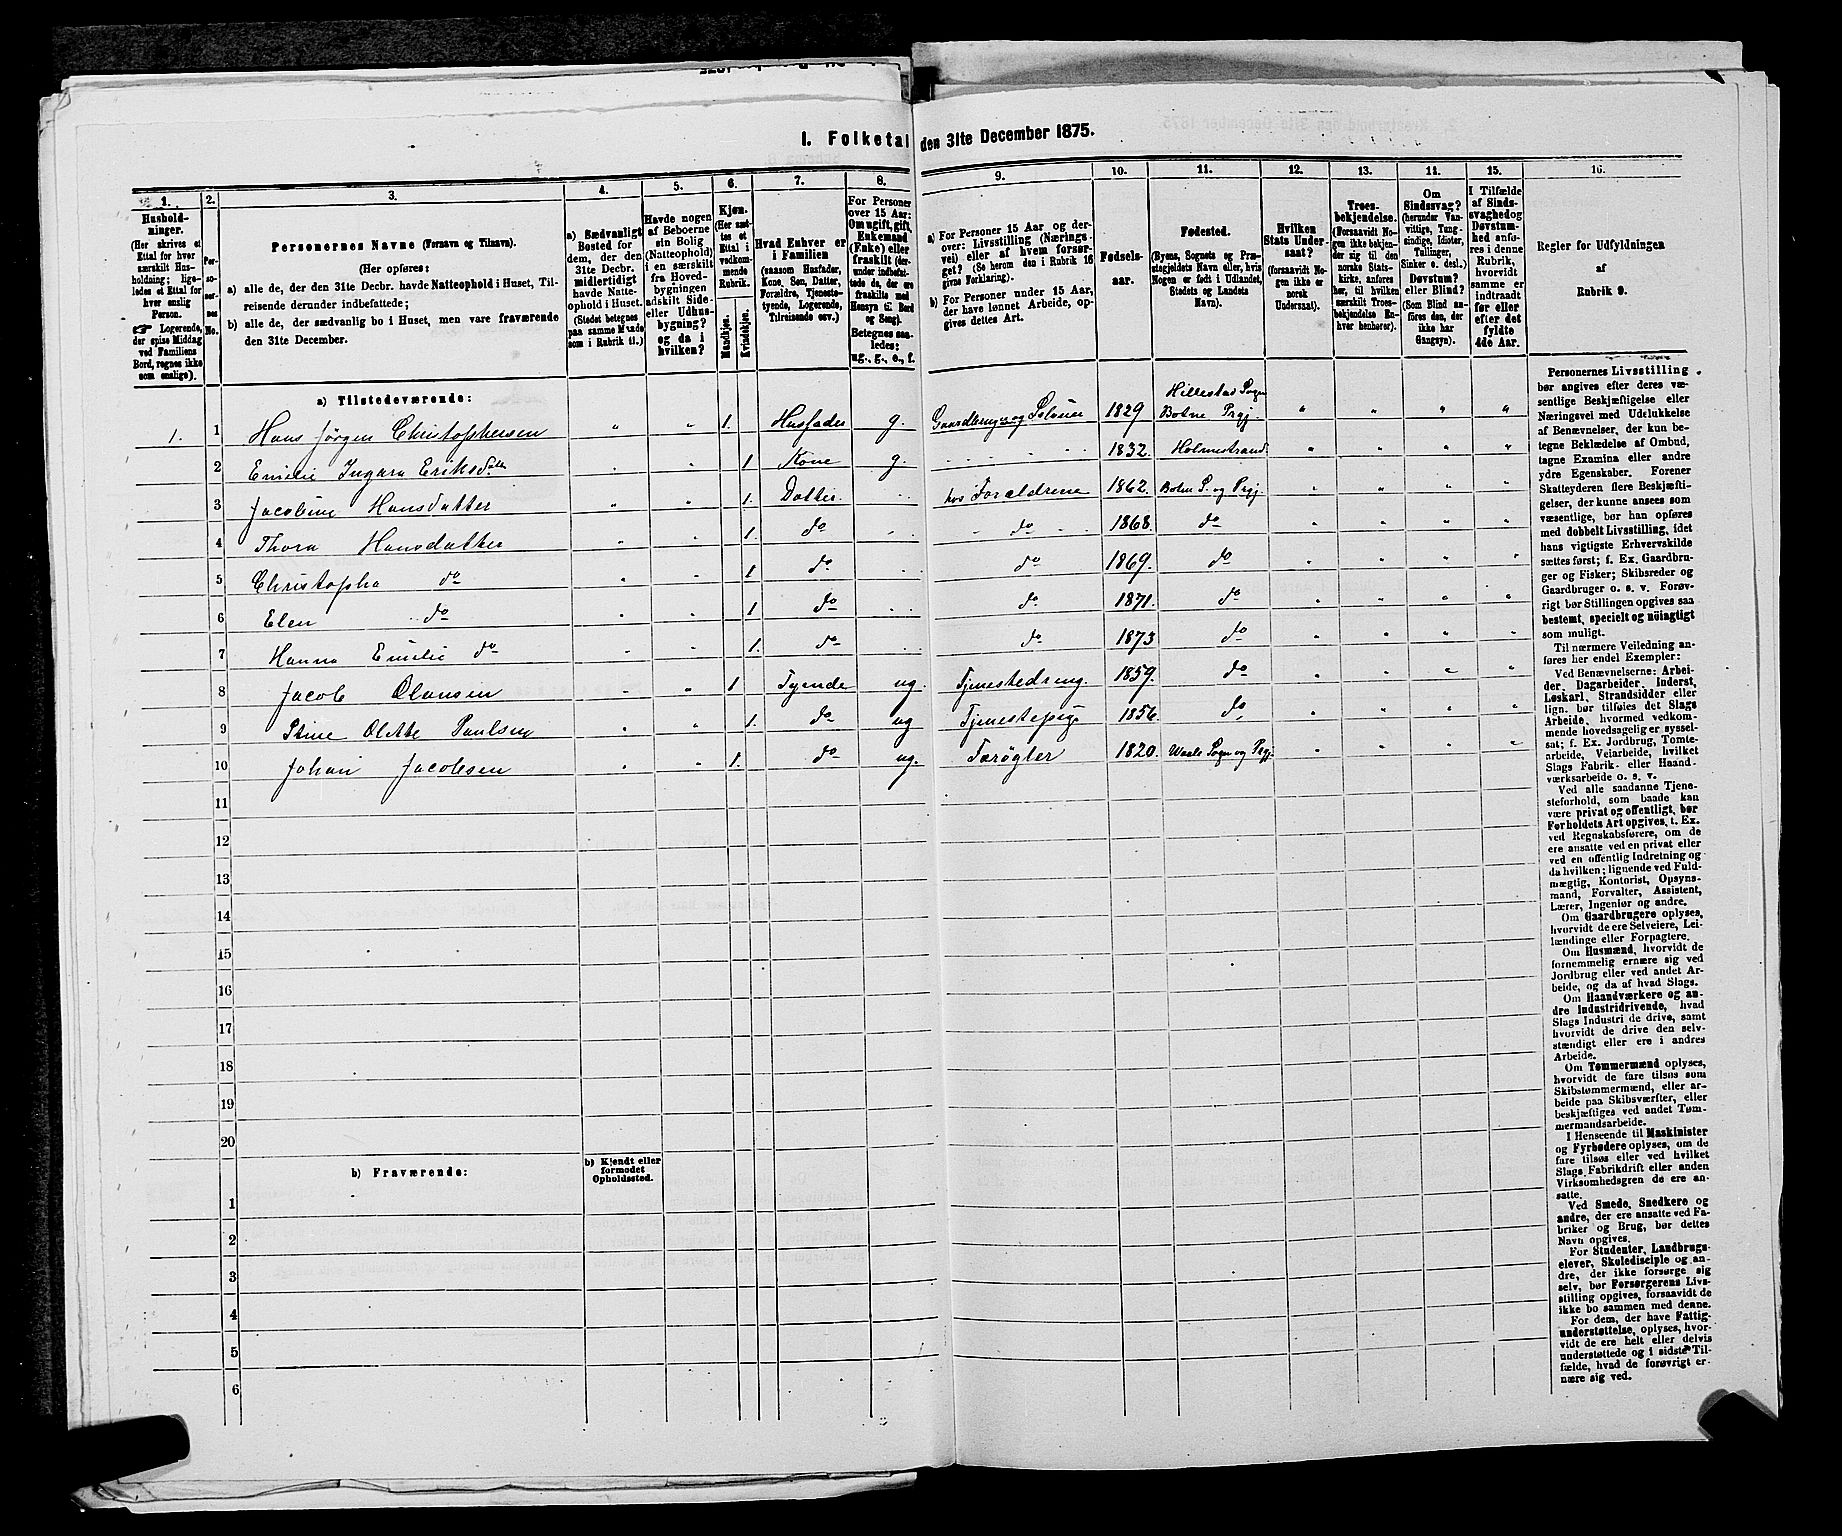 I. Folketal den 31te December 1875.
1.
Hushold-
ninger.
(Her skrives et
Ettal for hver
særskilt Hus-
holdning; lige-
ledes et Ettal for
hver enslig
Person.
☞ Logerende,
der spise Middag
ved Familiens
Bord, regnes ikke
som enslige).
2.
Per-
so-
ner-
nes
No.
3.
Personernes Navne (Fornavn og Tilnavn).
(Her opføres:
a) alle de, der den 31te Decbr. havde Natteophold i Huset, Til-
reisende derunder indbefattede;
b) alle de, der sædvanlig bo i Huset, men vare fraværende
den 31te December.
4.
a) Sædvanligt
Bosted for
dem, der den
31te Decbr.
midlertidigt
havde Natte-
ophold i Huset.
(Stedet betegnes
paa samme Maade
som i Rubrik 11.)
5.
Havde nogen
af Beboerne
sin Bolig
(Natteophold)
i en særskilt
fra Hoved-
bygningen
adskilt Side-
eller Udhus-
bygning?
og da i
hvilken?
6.
Kjøn.
(Her sæt-
tes et
Ettal i
vedkom-
mende
Rubrik.
Mandkjøn.
Kvindekjøn.
7.
Hvad Enhver er
i Familien
(saasom Husfader,
Kone, Søn, Datter,
Forældre, Tjeneste-
tyende, Logerende,
Tilreisende osv.)
8.
For Personer
over 15 Aar:
Om ugift, gift,
Enkemand
(Enke) eller
fraskilt (der-
under indbefat-
tede de, der ere
fraskilte med
Hensyn til Bord
og Seng).
Betegnes saa-
ledes:
ug., g., e., f.
9.
a) For Personer 15 Aar og der-
over: Livsstilling (Nærings-
vei) eller af hvem forsør-
get? (Se herom den i Rubrik 16
givne Forklaring).
b) For Personer under 15 Aar,
der have lønnet Arbeide, op-
gives dettes Art.
10.
Fødsels-
aar.
11.
Fødested.
(Byens, Sognets og Præ-
stegjeldets Navn, eller, hvis
Nogen er født i Udlandet,
Stedets og Landets
Navn).
12.
Hvilken
Stats Under-
saat?
(forsaavidt No-
gen ikke er
norsk
Undersaat).
13.
Troes-
bekjendelse.
(Forsaavidt No-
gen ikke bekjen-
der sig til den
norske Stats-
kirke, anføres
her, til hvilken
særskilt Troes-
bekjendelse En-
hver henhører).
14.
Om
Sindssvag?
(herunder Van-
vittige, Tung-
sindige, Idioter,
Tullinger,
Sinker o. desl.)
Døvstum?
eller Blind?
(Som Blind an-
føres den, der
ikke har
Gangsyn).
15.
I Tilfælde
af Sinds-
svaghed og
Døvstum-
hed anfø-
res i denne
Rubrik,
hvorvidt
samme er
indtraadt
før eller
efter det
fyldte
4de Aar.
16.
Regler for Udfyldningen
af
Rubrik 9.
a) Tilstedeværende:
1. 1 Hans Jørgen Christophersen " " 1. Husfader g. Gaardbruger og Selveier 1829 Hillestad Sogn Botne Prgj. " " " "
2 Emilie Ingara Eriksdatt " " 1 Kone g. 1832. Holmestrand " " " "
3 Jacobine Hansdatter " " 1. Datter. hos Forældrene 1862. Botne S. og Prgj. " " " "
4 Thora Hansdatter " " 1. do do 1868. do " " " "
5 Christopha do " " 1 do do 1869. do " " " "
6 Elen do " " 1 do do 1871. do " " " "
7 Hanna Emilie do " " 1. do do 1873 do " " " "
8 Jacob Olausen " " 1 Tyende ug. Tjenestedreng 1859. do " " " "
9 Stine Olette Paulsen " " 1. do ug Tjenestepige 1856. do, " " " "
10 Johan Jacobsen " " 1. do ug. Farøgter 1820. Waale Sogn og Prgj. " " " "
11
12
13
14
15
16
17
18
19
20
b) Fraværende:
b) Kjendt eller
formodet
Opholdssted.
1
2
3
4
5
6
Personernes Livsstilling
bør angives efter deres væ-
sentlige Beskjæftigelse eller
Næringsvei med Udelukkelse
af Benævnelser, der kun be-
tegne Beklædelse af Ombud,
tagne Examina eller andre
ydre Egenskaber. Forener
Skatteyderen flere Beskjæfti-
gelser, der kunne ansees som
væsentlige, bør han opføres
med dobbelt Livsstilling, idet
hans vigtigste Erhvervskilde
sættes først; f. Ex. Gaardbru-
ger og Fisker; Skibsreder og
Gaardbruger o. s. v. Forøv-
rigt bør Stillingen opgives saa
bestemt, specielt og nøiagtigt
som muligt.
Til nærmere Veiledning an-
føres her endel Exempler:
Ved Benævnelserne: Arbei-
der, Dagarbeider, Inderst,
Løskarl, Strandsidder eller
lign. bør tilføies det Slags
Arbeide, hvormed vedkom-
mende hovedsagelig er syssel-
sat; f. Ex. Jordbrug, Tomte-
arbeide, Veiarbeide, hvilket
Slags Fabrik- eller Haand-
værksarbeide o. s. v.
Ved alle saadanne Tjene-
steforhold, som baade kan
være privat og offentligt, bør
Forholdets Art opgives, f. Ex.
ved Regnskabsførere, om de
ere ansatte ved en privat eller
ved en offentlig Indretning og
da hvilken; lignende ved Fuld-
mægtig, Kontorist, Opsyns-
mand, Forvalter, Assistent,
Lærer, Ingeniør og andre.
Om Gaardbrugere oplyses,
hvorvidt de ere Selveiere, Lei-
lændinge eller Forpagtere.
Om Husmænd, hvorvidt de
fornemmelig ernære sig ved
Jordbrug eller ved andet Ar-
beide, og da af hvad Slags.
Om Haandværkere og an-
dre Industridrivende, hvad
Slags Industri de drive, samt
hvorvidt de drive den selv-
stændigt eller ere i andres
Arbeide.
Om Tømmermænd oplyses,
hvorvidt de fare tilsøs som
Skibstømmermænd, eller ar-
beide paa Skibsværfter, eller
beskjæftiges ved andet Tøm-
mermandsarbeide.
I Henseende til Maskinister
og Fyrbødere oplyses, om de
fare tilsøs eller ved hvilket
Slags Fabrikdrift eller anden
Virksomhedsgren de ere an-
satte.
Ved Smede, Snedkere og
andre, der ere ansatte ved Fa-
briker og Brug, bør dettes
Navn opgives.
For Studenter, Landbrugs-
elever, Skoledisciple og an-
dre, der ikke forsørge sig
selv, bør Forsørgerens Livs-
stilling opgives, forsaavidt de
ikke bo sammen med denne.
For dem, der have Fattig-
understøttelse, oplyses, hvor-
vidt de ere helt eller delvis
understøttede og i sidste Til-
fælde, hvad de forøvrigt er-
nære sig ved.